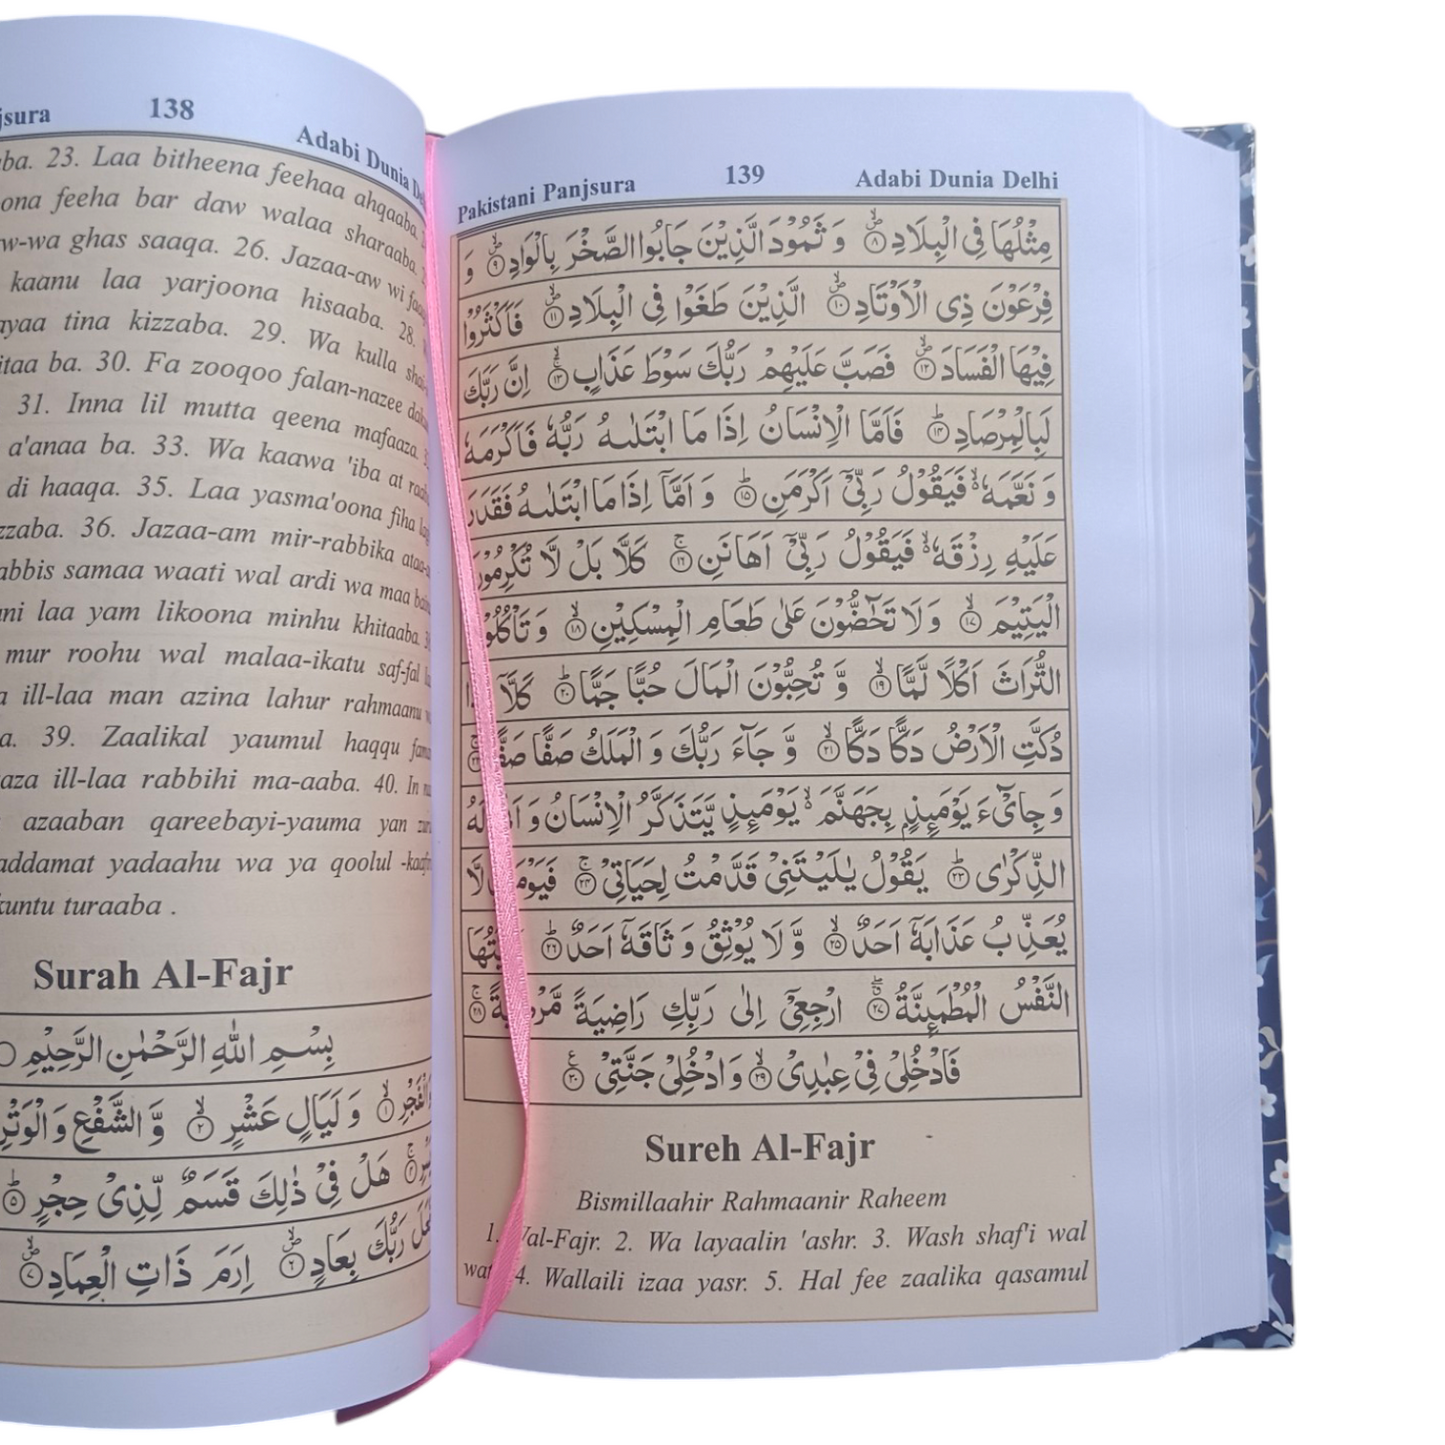 jsura 138 Adabi Dunia
ba. 23. Laa bitheena feehaa ahqaaba.
ona feeha bar daw walaa sharaaba.
w-wa ghas saaqa. 26. Jazaa-aw wi
kaanu laa yarjoona hisaaba. 28.
ayaa tina kizzaba. 29. Wa kulla
itaa ba. 30. Fa zooqoo falan-nazee
31. Inna lil mutta qeena mafaaza.
a'anaa ba. 33. Wa kaawa 'iba at
di haaqa. 35. Laa yasma'oona fiha
zzaba. 36. Jazaa-am mir-rabbika
abbis samaa waati wal ardi wa maa
ni laa yam likoona minhu khitaaba.
mur roohu wal malaa-ikatu saf-fal
a ill-laa man azina lahur rahmaanu
a. 39. Zaalikal yaumul haqqu
aza ill-laa rabbihi ma-aaba. 40. In
azaaban qareebayi-yauma yan
addamat yadaahu wa ya qoolul
kuntu turaaba .
Surah Al-Fajr
بِسْمِ اللّٰهِ الرَّحْمٰنِ الرَّحِيْمِ
وَ لَيَالٍ عَشْرٍ ۙ﴿۲﴾ وَّ الشَّفْعِ وَ الْوَتْرِ
هَلْ فِيْ ذٰلِكَ قَسَمٌ لِّذِيْ حِجْرٍ ؕ﴿۵﴾
رَبُّكَ بِعَادٍ ﴿۶﴾ اِرَمَ ذَاتِ الْعِمَادِ ﴿۷﴾
Pakistani Panjsura 139 Adabi Dunia Delhi
مِثْلُهَا فِي الْبِلَادِ ﴿۸﴾ وَ ثَمُوْدَ الَّذِيْنَ جَابُوا الصَّخْرَ بِالْوَادِ ﴿۹﴾ وَ
فِرْعَوْنَ ذِي الْاَوْتَادِ ﴿۱۰﴾ الَّذِيْنَ طَغَوْا فِي الْبِلَادِ ﴿۱۱﴾ فَاَكْثَرُوْا
فِيْهَا الْفَسَادَ ﴿۱۲﴾ فَصَبَّ عَلَيْهِمْ رَبُّكَ سَوْطَ عَذَابٍ ﴿۱۳﴾ اِنَّ رَبَّكَ
لَبِالْمِرْصَادِ ﴿۱۴﴾ فَاَمَّا الْاِنْسَانُ اِذَا مَا ابْتَلٰىهُ رَبُّهٗ فَاَكْرَمَهٗ
وَ نَعَّمَهٗ فَيَقُوْلُ رَبِّيْٓ اَكْرَمَنِ ﴿۱۵﴾ وَ اَمَّآ اِذَا مَا ابْتَلٰىهُ فَقَدَرَ
عَلَيْهِ رِزْقَهٗ فَيَقُوْلُ رَبِّيْٓ اَهَانَنِ ﴿۱۶﴾ كَلَّا بَلْ لَّا
الْيَتِيْمَ ﴿۱۷﴾ وَ لَا تَحٰٓضُّوْنَ عَلٰى طَعَامِ الْمِسْكِيْنِ ﴿۱۸﴾
التُّرَاثَ اَكْلًا لَّمًّا ﴿۱۹﴾ وَّ تُحِبُّوْنَ الْمَالَ حُبًّا جَمًّا ﴿۲۰﴾ كَلَّآ
دُكَّتِ الْاَرْضُ دَكًّا دَكًّا ﴿۲۱﴾ وَّ جَآءَ رَبُّكَ وَ الْمَلَكُ صَفًّا صَفًّا
وَ جِايْٓءَ يَوْمَىِٕذٍۭ بِجَهَنَّمَ يَوْمَىِٕذٍ يَّتَذَكَّرُ الْاِنْسَانُ وَ
الذِّكْرٰى ﴿۲۳﴾ يَقُوْلُ يٰلَيْتَنِيْ قَدَّمْتُ لِحَيَاتِيْ ﴿۲۴﴾ لَّا
يُعَذِّبُ عَذَابَهٗٓ اَحَدٌ ﴿۲۵﴾ وَّ لَا يُوْثِقُ وَ ثَاقَهٗٓ اَحَدٌ ﴿۲۶﴾
النَّفْسُ الْمُطْمَىِٕنَّةُ ﴿۲۷﴾ ارْجِعِيْٓ اِلٰى رَبِّكِ رَاضِيَةً ﴿۲۸﴾
فَادْخُلِيْ فِيْ عِبٰدِيْ ﴿۲۹﴾ وَ ادْخُلِيْ جَنَّتِيْ ﴿۳۰﴾
Sureh Al-Fajr
Bismillaahir Rahmaanir Raheem
1. Wal-Fajr. 2. Wa layaalin 'ashr. 3. Wash shaf'i wal
4. Wallaili izaa yasr. 5. Hal fee zaalika qasamul